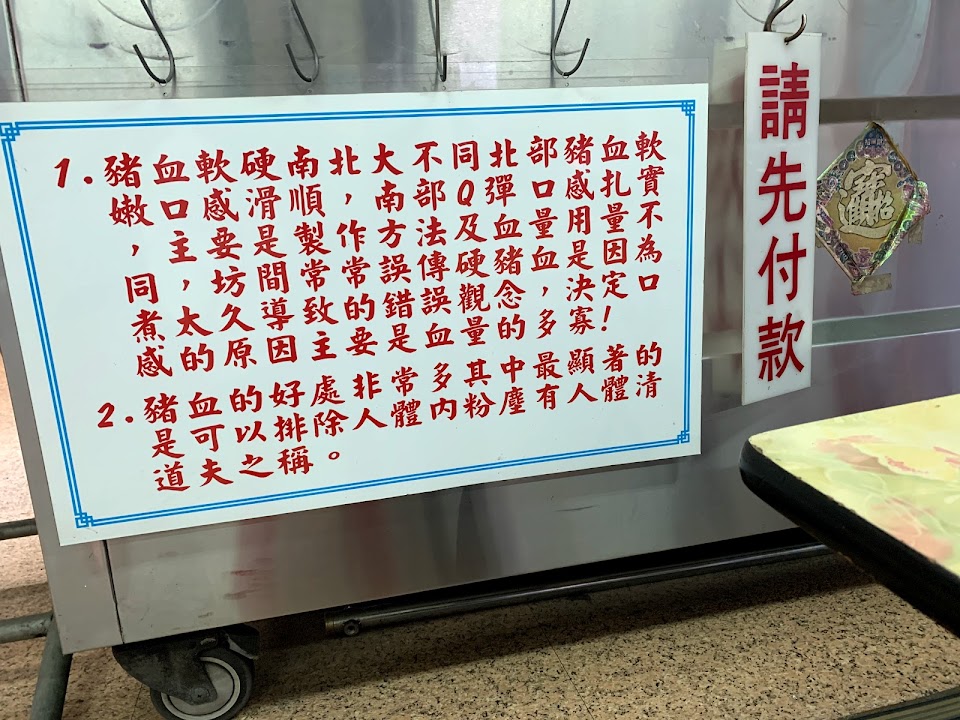 1.豬血軟硬南北大不同北部豬血軟
嫩口感滑順,南部Q彈口感扎實
,主要是製作方法及血量用量不
同,坊間常常誤傳硬豬血是因為
煮太久導致的錯誤觀念,決定口
感的原因主要是血量的多寡!
2.豬血的好處非常多其中最顯著的
是可以排除人體內粉塵有人體清
道夫之稱。
請先付款
招財進寶